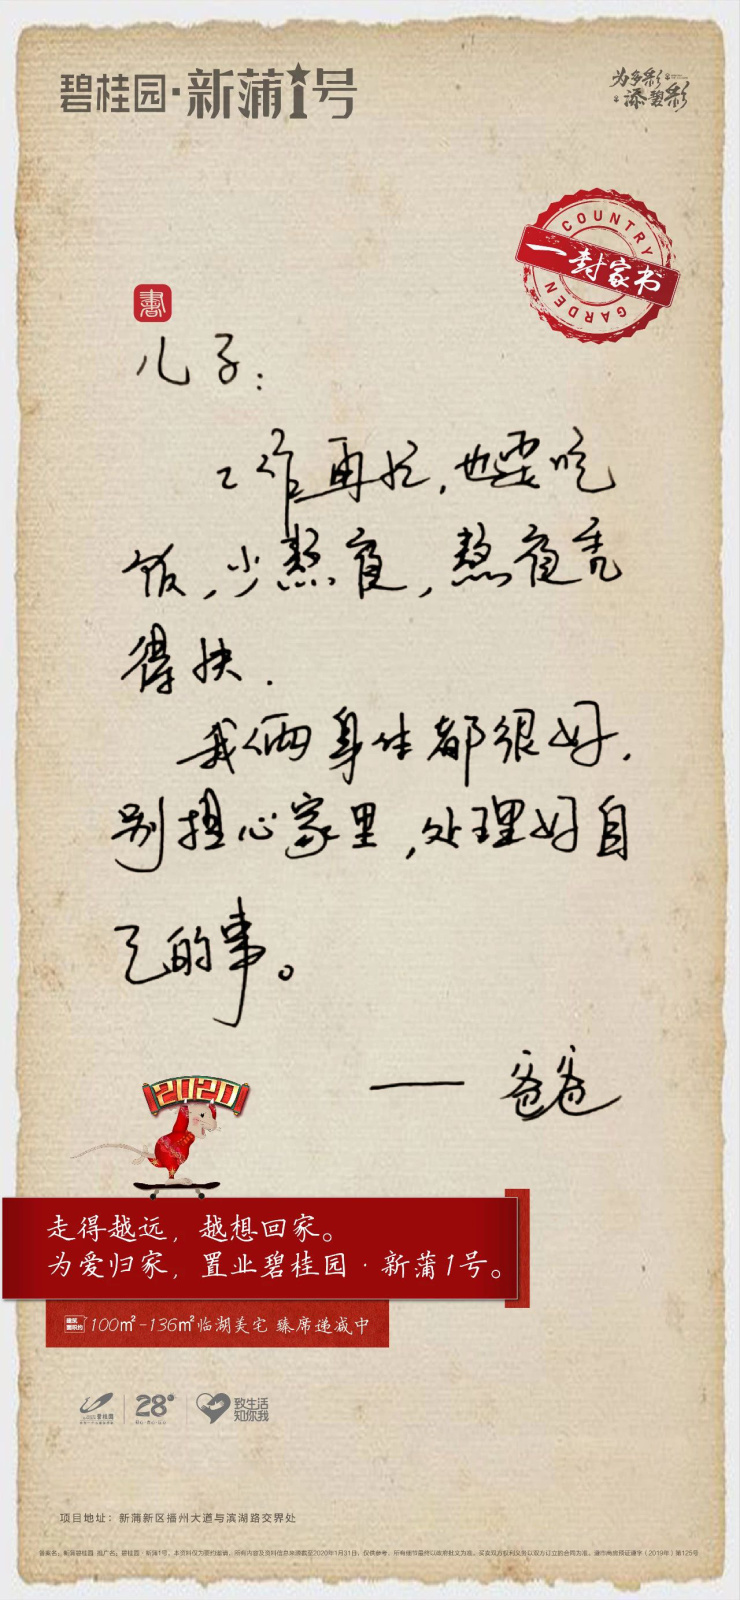 碧桂园·新蒲1号
为多彩
添碧彩
COUNTRY
一封家书
GARDEN
書
儿子：
工作再忙，也要吃
饭，少熬夜，熬夜秃
得快．
我俩身体都很好．
别担心家里，处理好自
己的事。
—— 爸爸
2020
走得越远，越想回家。
为爱归家，置业碧桂园·新蒲1号。
建筑面积约 100㎡-136㎡临湖美宅 臻席递减中
碧桂园
28
致生活
知你我
项目地址：新蒲新区播州大道与滨湖路交界处